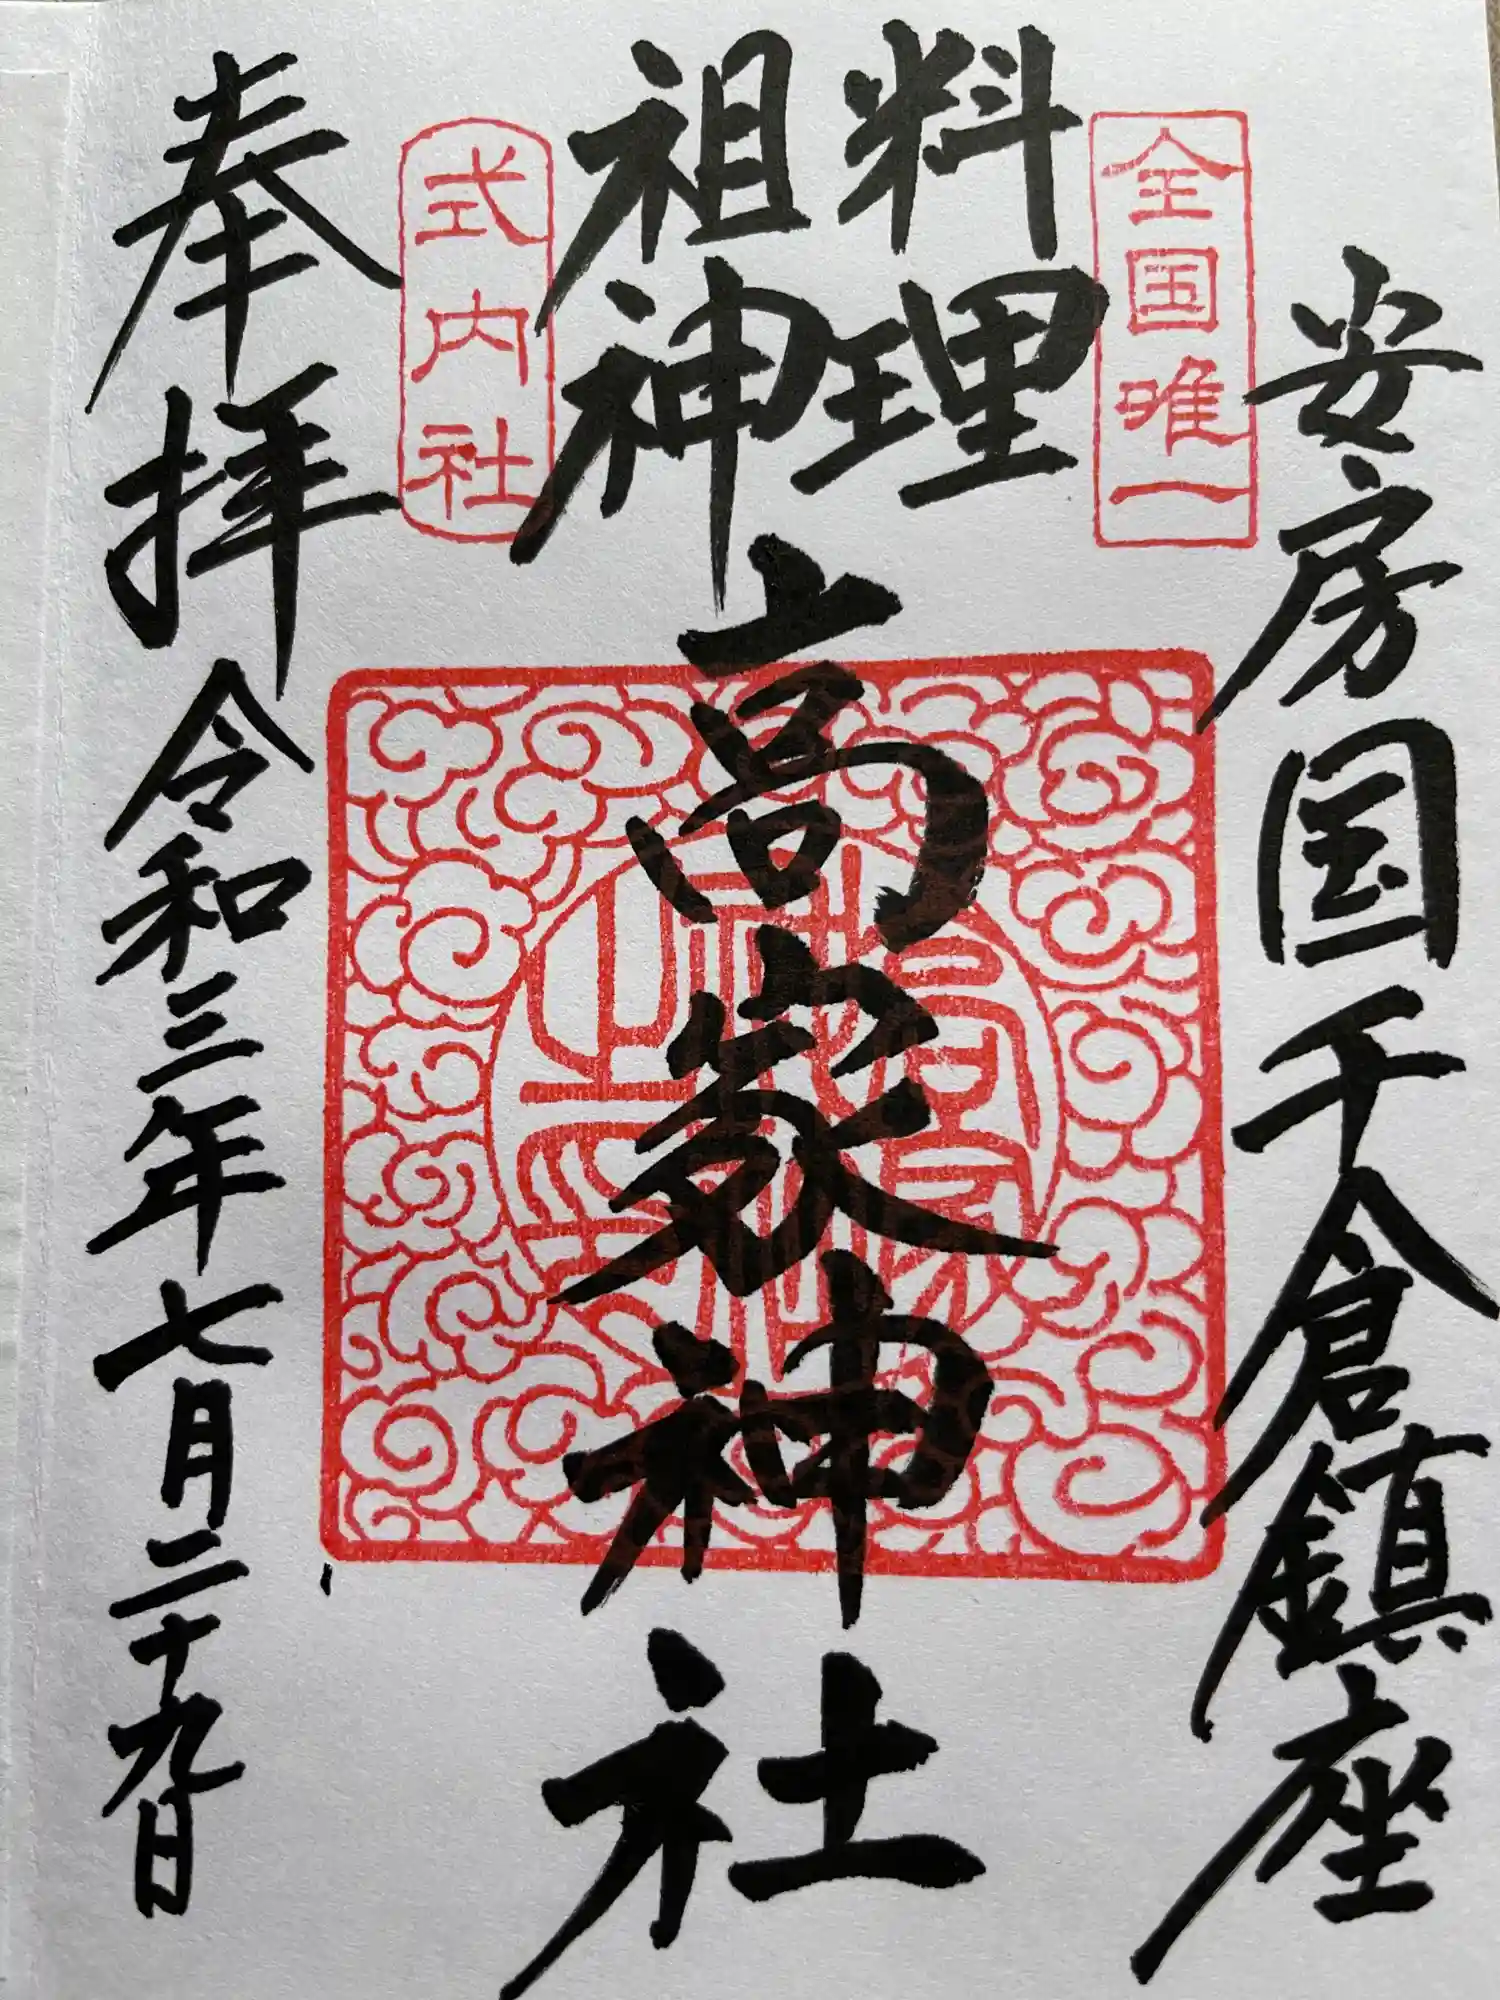 安房国千倉鎮座
全国唯一
料理
祖神
高家神社
式内社
奉拝
令和三年七月二十九日